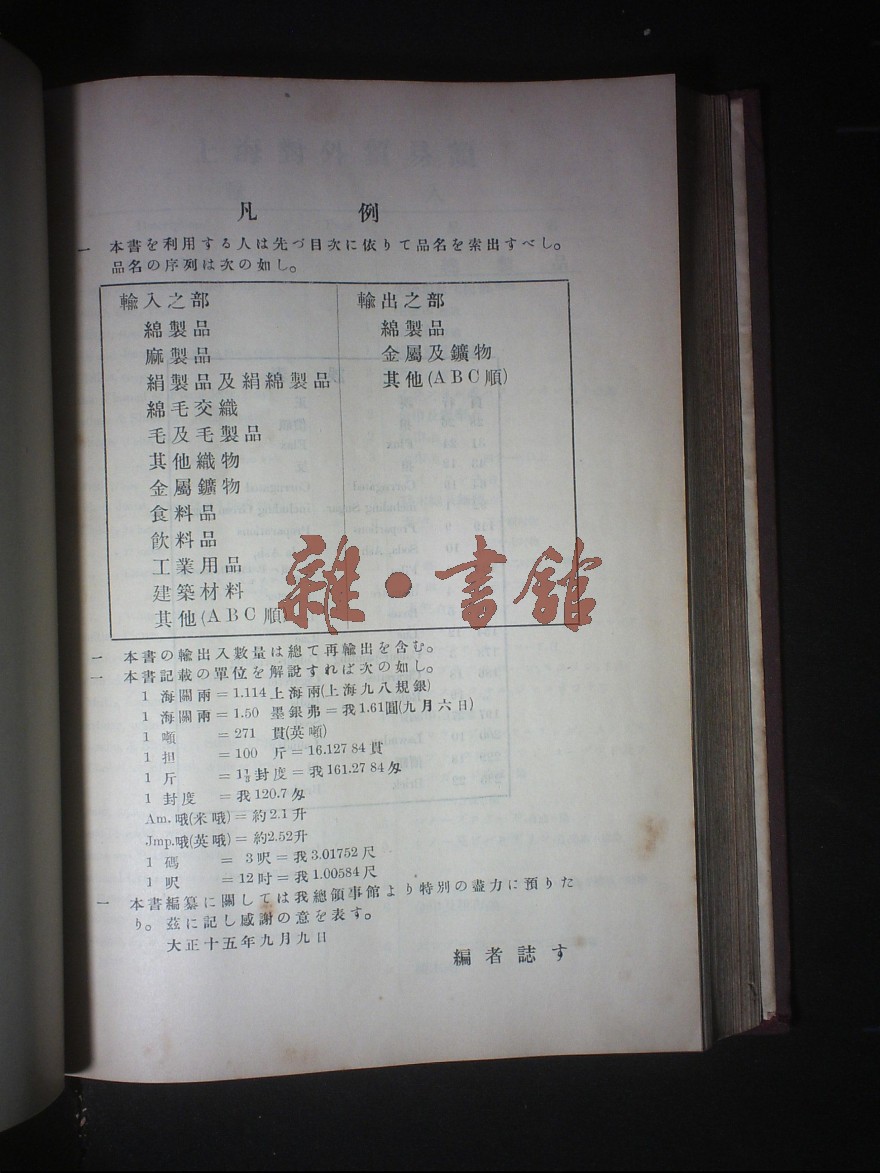 凡例
一 本書を利用する人は先づ目次に依りて品名を索出すべし。
品名の序列は次の如し。
輸入之部
綿製品
麻製品
絹製品及絹綿製品
綿毛交織
毛及毛製品
其他織物
金屬鑛物
食料品
飲料品
工業用品
建築材料
其他(ABC順)
輸出之部
綿製品
金屬及鑛物
其他(ABC順)
雜・書館
一 本書の輸出入數量は總て再輸出を含む。
一 本書記載の單位を解説すれば次の如し。
1 海關兩=1.114上海兩(上海九八規銀)
1 海關兩=1.50 墨銀弗=我1.61圓(九月六日)
1 噸 =271 貫(英噸)
1 担 =100 斤=16.127 84貫
1 斤 =1⅓封度=我161.27 84匁
1 封度 =我120.7匁
Am.哦(米哦)=約2.1升
Jmp.哦(英哦)=約2.52升
1 碼 = 3呎=我3.01752尺
1 呎 =12吋=我1.00584尺
一 本書編纂に關しては我總領事館より特別の盡力に預りた
り。茲に記し感謝の意を表す。
大正十五年九月九日
編者誌す